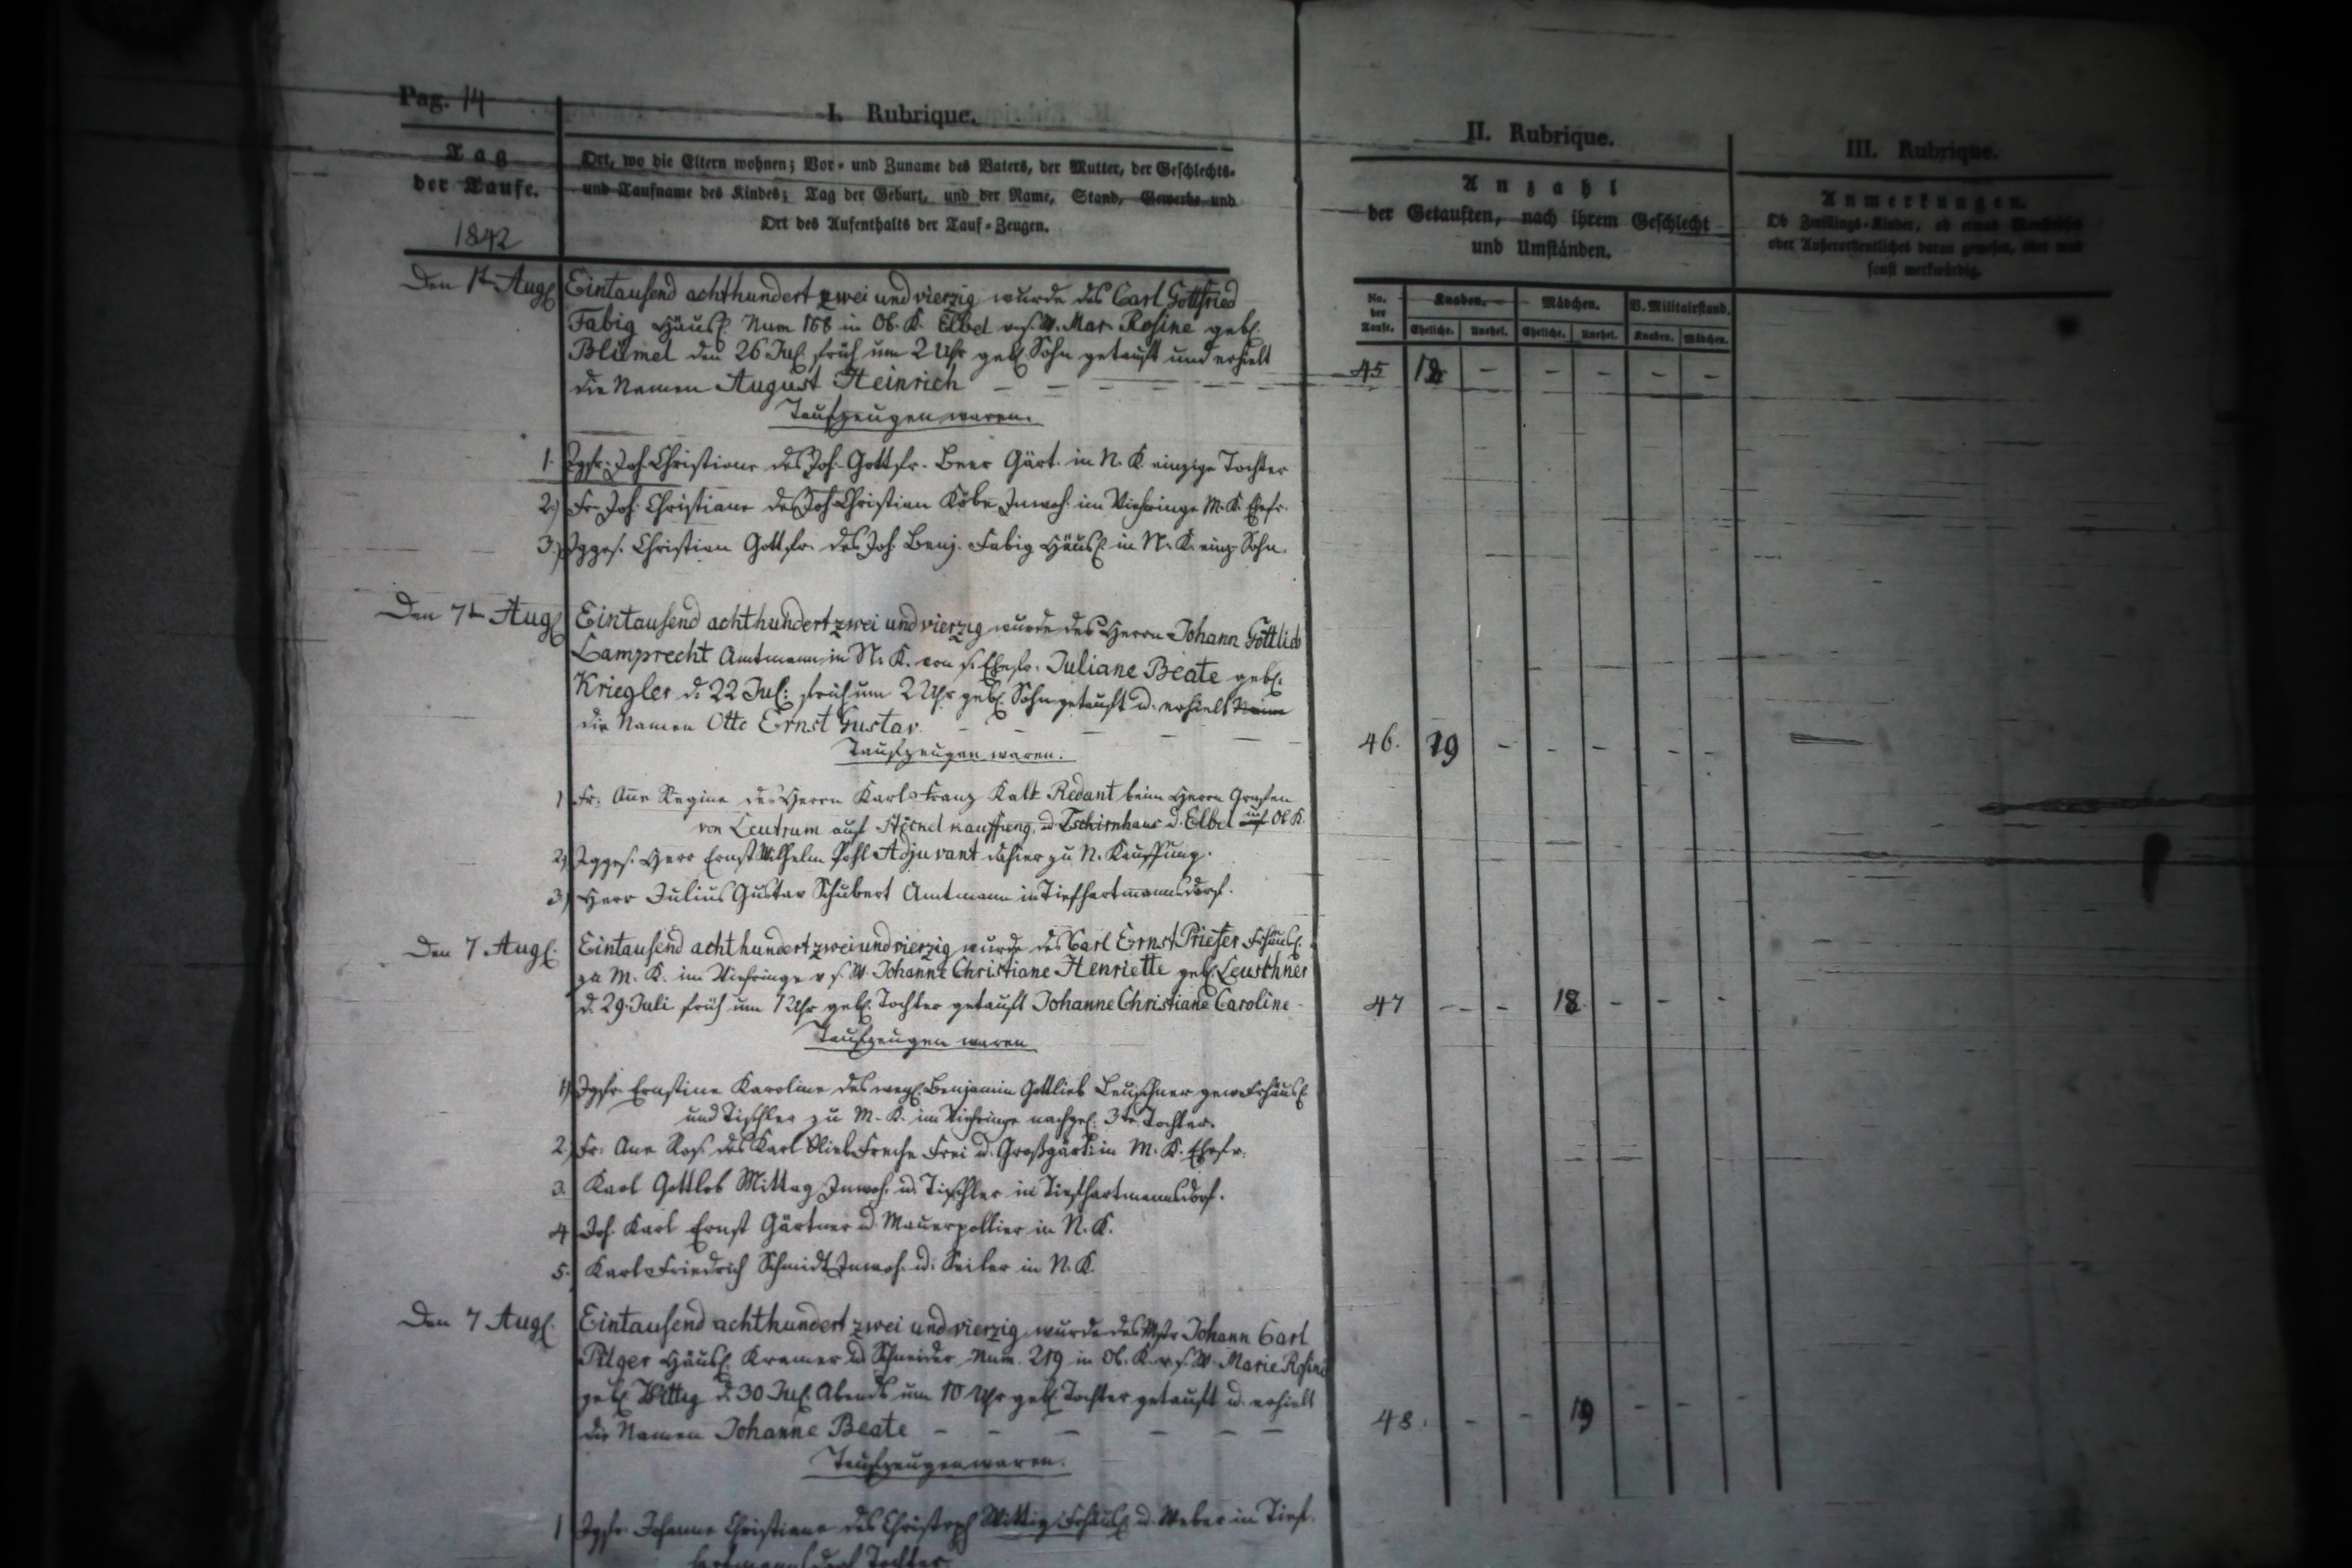 Pag. 14
I. Rubrique.
II. Rubrique.
III. Rubrique.
Tag
der Taufe.
1842
Ort, wo die Eltern wohnen; Vor- und Zuname des Vaters, der Mutter, der Geschlechts-
und Taufname des Kindes; Tag der Geburt, und der Name, Stand, Gewerbe und
Ort des Aufenthalts der Tauf-Zeugen.
Anzahl
der Getauften, nach ihrem Geschlecht
und Umständen.
Anmerkungen.
Ob Zwillings-Kinder, ob etwas
oder Außerordentliches daran gewesen, oder was
sonst merkwürdig.
No. der Taufe.
Knaben.
Mädchen.
B. Militairstand.
Eheliche. Unehel. Eheliche. Unehel. Knaben. Mädchen.
Den 1t Aug. Eintausend achthundert zwei und vierzig wurde des Carl Gottfried
Fabig Häusl. Num 168 in Ob. K. Elbel v. s. W. Mar. Rosine geb.
Blümel den 26 Jul. früh um 2 Uhr geb. Sohn getauft und erhielt
die Namen August Heinrich
45
Taufzeugen waren.
1. Jgfr. Joh. Christiane des Joh. Gottfr. Beer Gärt. in N. K. einzige Tochter
2.) Fr. Joh. Christiane des Joh. Christian Köbe Inwoh. im Viehringe M. K. Ehefr.
3.) Jgges. Christian Gottfr. des Joh. Benj. Fabig Häusl. in N. K. einz. Sohn.
Den 7t Aug. Eintausend achthundert zwei und vierzig wurde des Herrn Johann Gottlieb
Lamprecht Amtmann in N. K. von s. Ehefr. Juliane Beate geb.
Kriegler d. 22 Jul: früh um 2 Uhr geb. Sohn getauft u. erhielt
die Namen Otto Ernst Gustav.
46. 19
Taufzeugen waren.
1 Fr. Ann Regine des Herrn Karl Franz Kalk Redant beim Herrn Grafen
von Zeutrum auf Stöckel Kauffung, u. Tschirnhaus u. Elbel Ob K.
2) Jgges. Herr Ernst Wilhelm Pohl Adjuvant dahier zu N. Kauffung.
3) Herr Julius Gustav Schubert Amtmann in Tiefhartmannsdorf.
Den 7 Aug. Eintausend achthundert zwei und vierzig wurde des Carl Ernst Prieser Frhäusl.
zu M. K. im Viehringe v s. W. Johanne Christiane Henriette geb. Leuschner
d. 29. Juli früh um 1 Uhr geb. Tochter getauft Johanne Christiane Caroline
47 18
Taufzeugen waren
1) Jgfr. Ernstine Karoline des weyl. Benjamin Gottlieb Leuschner gew. Frhäusl.
und Tischler zu M. K. im Viehringe nachgel. 3te Tochter.
2) Fr. Ane Ros. des Karl Freche Frei u. Großgärt. in M. K. Ehefr.
3. Karl Gottlob Mittag Inwoh. u. Tischler in Tiefhartmannsdorf.
4 Joh. Karl Ernst Gärtner u. Mauerpollier in N. K.
5. Karl Friedrich Schmidt Inwoh. u. Seiler in N. K.
Den 7 Aug. Eintausend achthundert zwei und vierzig wurde des Mstr Johann Carl
Pilger Häusl. Kramer u. Schneider Num. 219 in Ob. K. v. s. W. Marie Rosine
geb. Wittig d. 30 Jul. Abends um 10 Uhr geb. Tochter getauft u. erhielt
die Namen Johanne Beate
48. 19
Taufzeugen waren.
1 Jgfr. Johanne Christiane des Christoph Wittig Frhäusl. u. Weber in Tief-
hartmannsdorf Tochter.